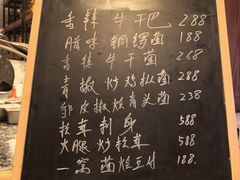 香辣牛干巴 288
腊味铜锣菌 188
香辣牛干菌 268
青椒炒鸡枞菌 288
邹皮椒炝青头菌 238
松茸刺身 588
火腿炒松茸 588
一窝菌烩豆付 188.